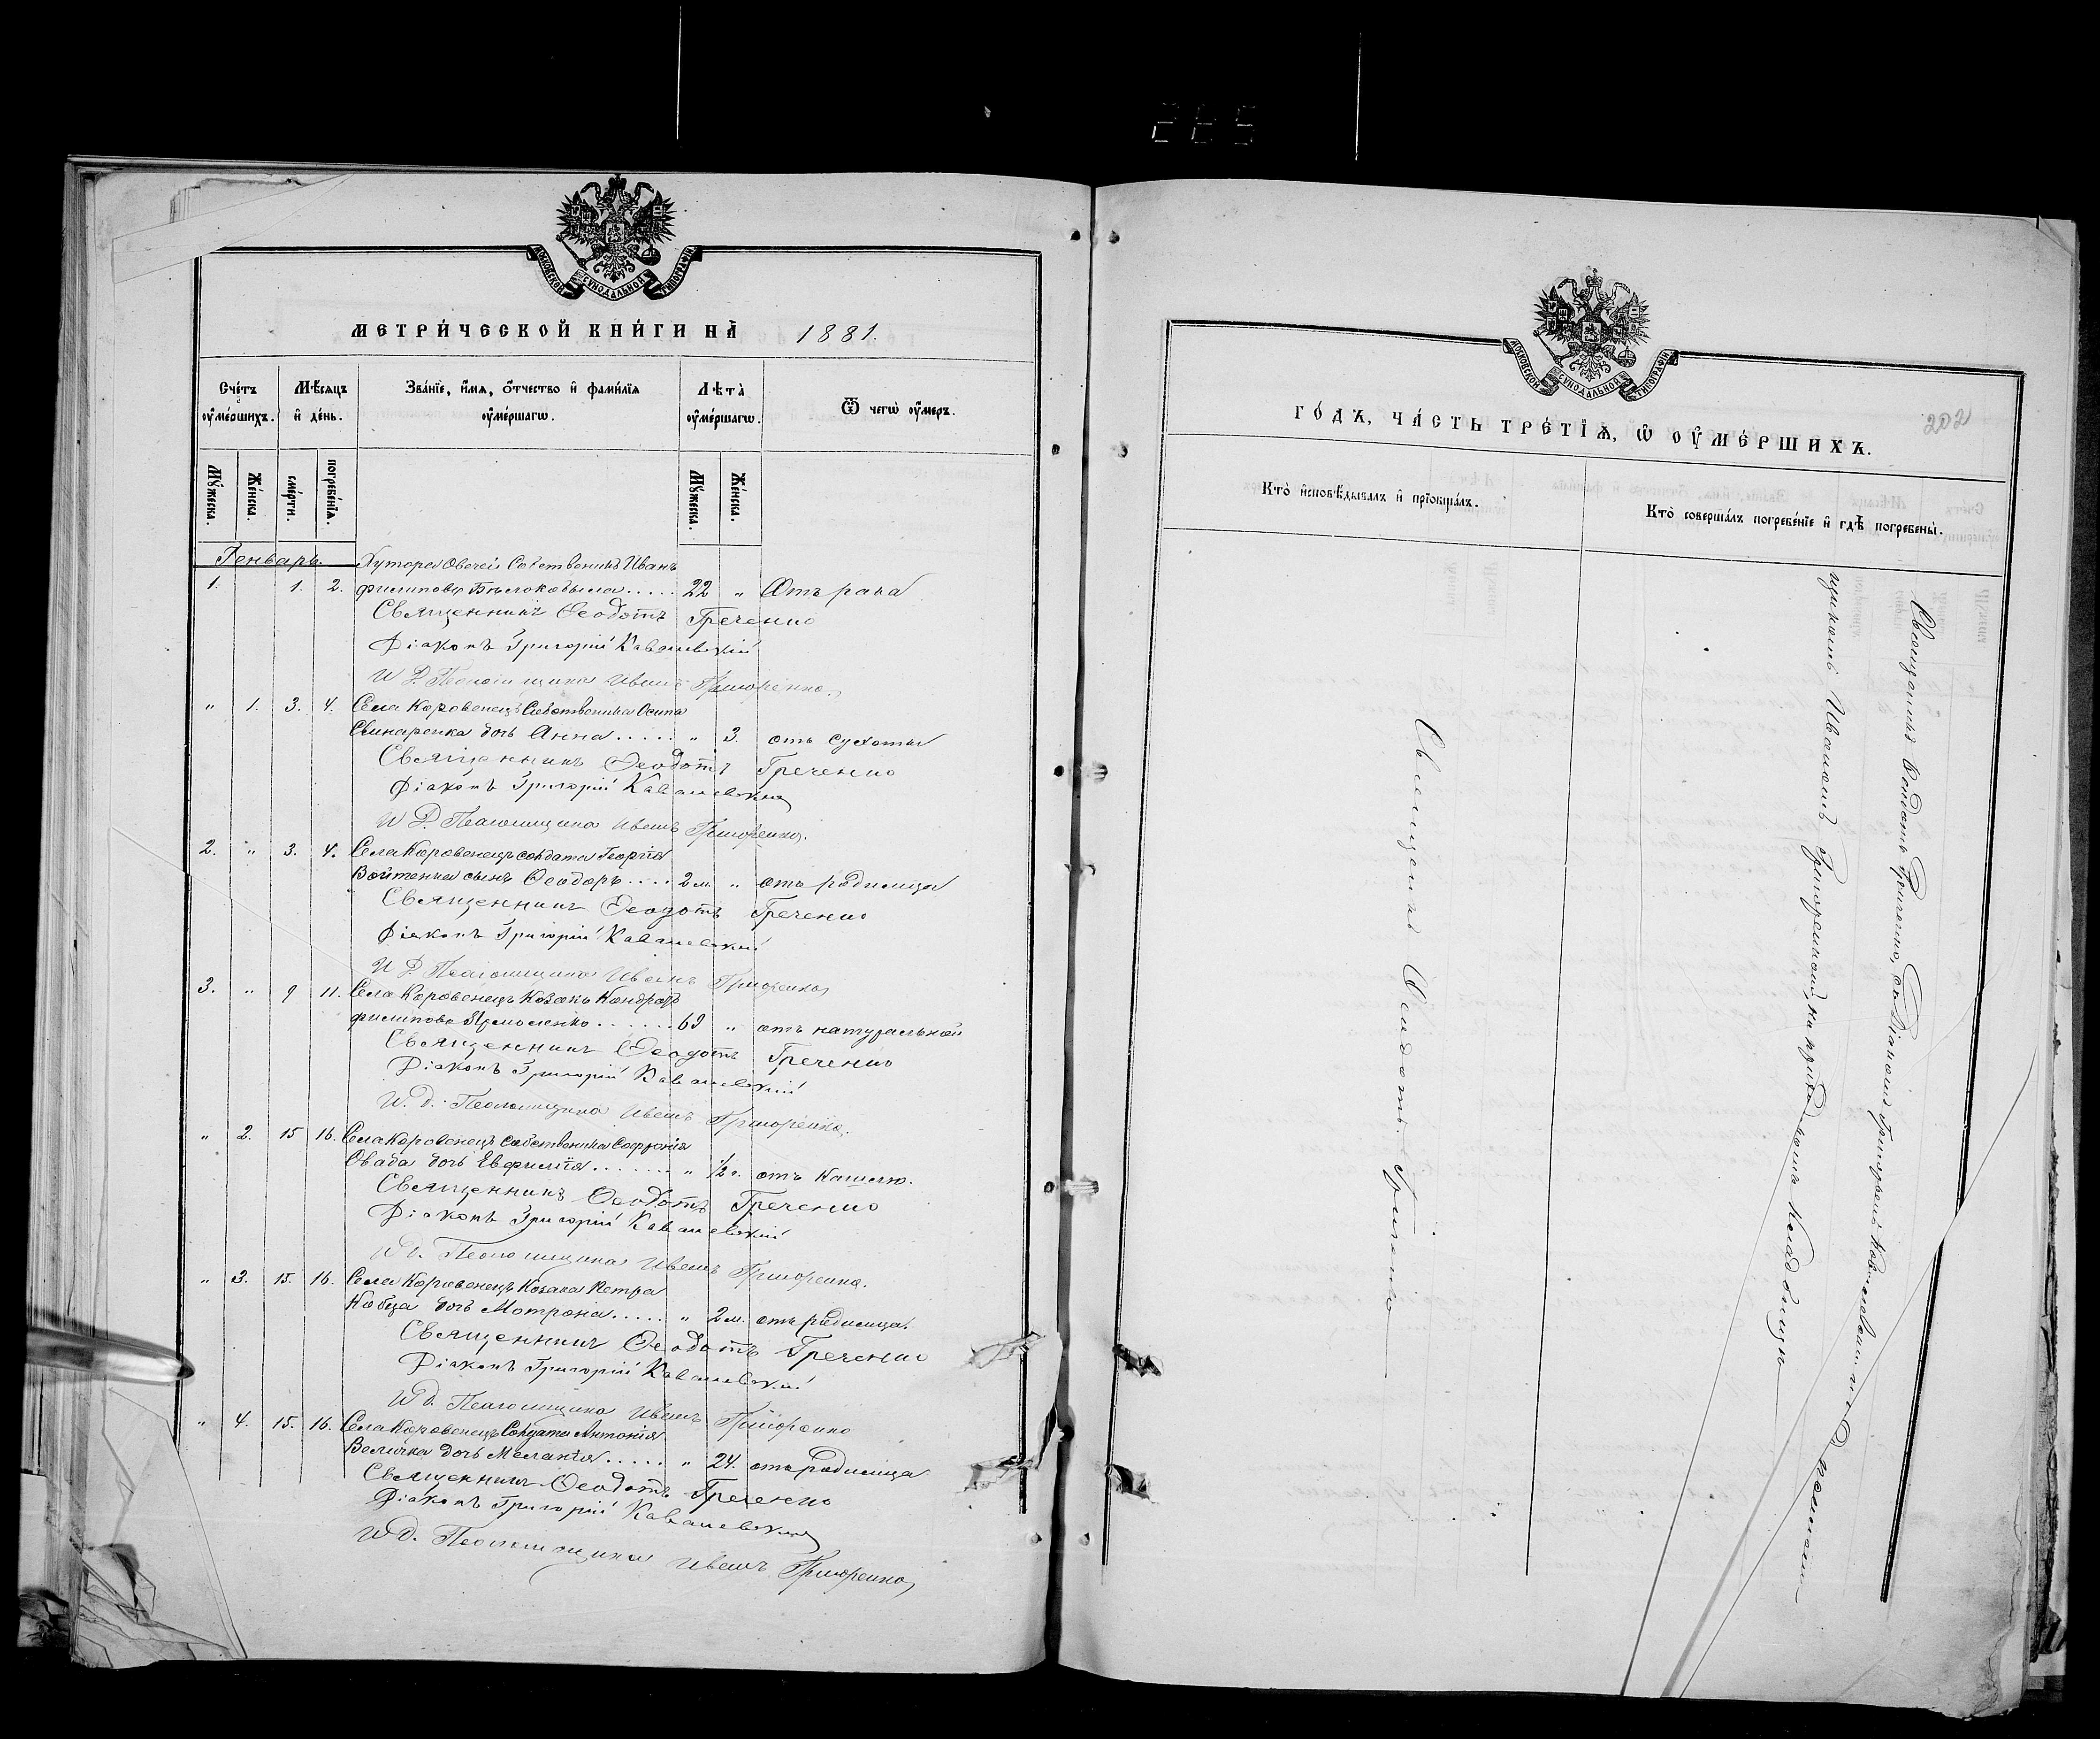 МОСКОВСКОЙ СУНОДАЛЬНОЙ ТИПОГРАФІИ
МЕТРИ́ЧЕСКОЙ КНИ́ГИ НА̀ 1881.
Сче́тъ ᲂу҆ме́ршихъ.
Мѣ́сяцъ и҆ де́нь.
Зва́нїе, и҆́мя, ѻ҆́тчество и҆ фами́лїя ᲂу҆ме́ршагѡ.
Лѣта̀ ᲂу҆ме́ршагѡ.
Ѿ чегѡ̀ ᲂу҆́меръ.
Мꙋ́жеска.
Же́нска.
сме́рти.
погребе́нїѧ.
Мꙋ́жеска.
Же́нска.
Генварь.
Хутора Овечаго Собственникъ Иванъ
1. 1. 2. Филиповъ Бѣлокобыла..... 22 „ Отъ рака
Священникъ Ѳеодотъ Греченко
Діаконъ Григорій Кавалевскій
И Д. Псаломщика Иванъ Григоренко
„ 1. 3. 4. Села Коровенецъ Собственника Осипа
Свинаренка дочь Анна..... „ 3. отъ сухоты
Священникъ Ѳеодотъ Греченко
Діаконъ Григорій Кавалевскій
И Д. Псаломщика Иванъ Григоренко.
2. „ 3. 4. Села Коровенецъ солдата Георгія
Войтенка сынъ Ѳеодоръ.... 2 м. „ отъ родимца
Священникъ Ѳеодотъ Греченко
Діаконъ Григорій Кавалевскій
И Д. Псаломщика Иванъ Григоренко
3. „ 9 11. Села Коровенецъ Козакъ Кондратъ
Филиповъ Ярмоленко...... 69 „ отъ натуральной
Священникъ Ѳеодотъ Греченко
Діаконъ Григорій Кавалевскій
И. д. Псаломщика Иванъ Григоренко.
„ 2. 15 16. Села Коровенецъ собственника
дочь Евфимія....... „ 1/2 г. отъ кашлю.
Священникъ Ѳеодотъ Греченко
Діаконъ Григорій Кавалевскій
И д. Псаломщика Иванъ Григоренко.
„ 3. 15. 16. Села Коровенецъ Козака Петра
Кобца дочь Мотрона..... „ 2 м. отъ родимца.
Священникъ Ѳеодотъ Греченко
Діаконъ Григорій Кавалевскій
И д. Псаломщика Иванъ Григоренко
„ 4. 15. 16. Села Коровенецъ Солдата Антонія
Величка дочь Меланія..... „ 24. отъ родимца
Священникъ Ѳеодотъ Греченко
Діаконъ Григорій Кавалевскій
И д. Псаломщика Иванъ Григоренко
МОСКОВСКОЙ СУНОДАЛЬНОЙ ТИПОГРАФІИ
202
ГО́ДЪ, ЧА́СТЬ ТРЕ́ТЇѦ, Ѡ҆ ОУ҆МЕ́РШИХЪ.
Кто̀ и҆сповѣ́дывалъ и҆ прїѡбща́лъ.
Кто̀ соверша́лъ погребе́нїе и҆ гдѣ̀ погребены̀.
Священникъ Ѳеодотъ Греченко
Священникъ Ѳеодотъ Греченко, съ Діакономъ Григоріемъ Кавалевскимъ и
Иваномъ Григоренкомъ, на приходскомъ Кладбищи